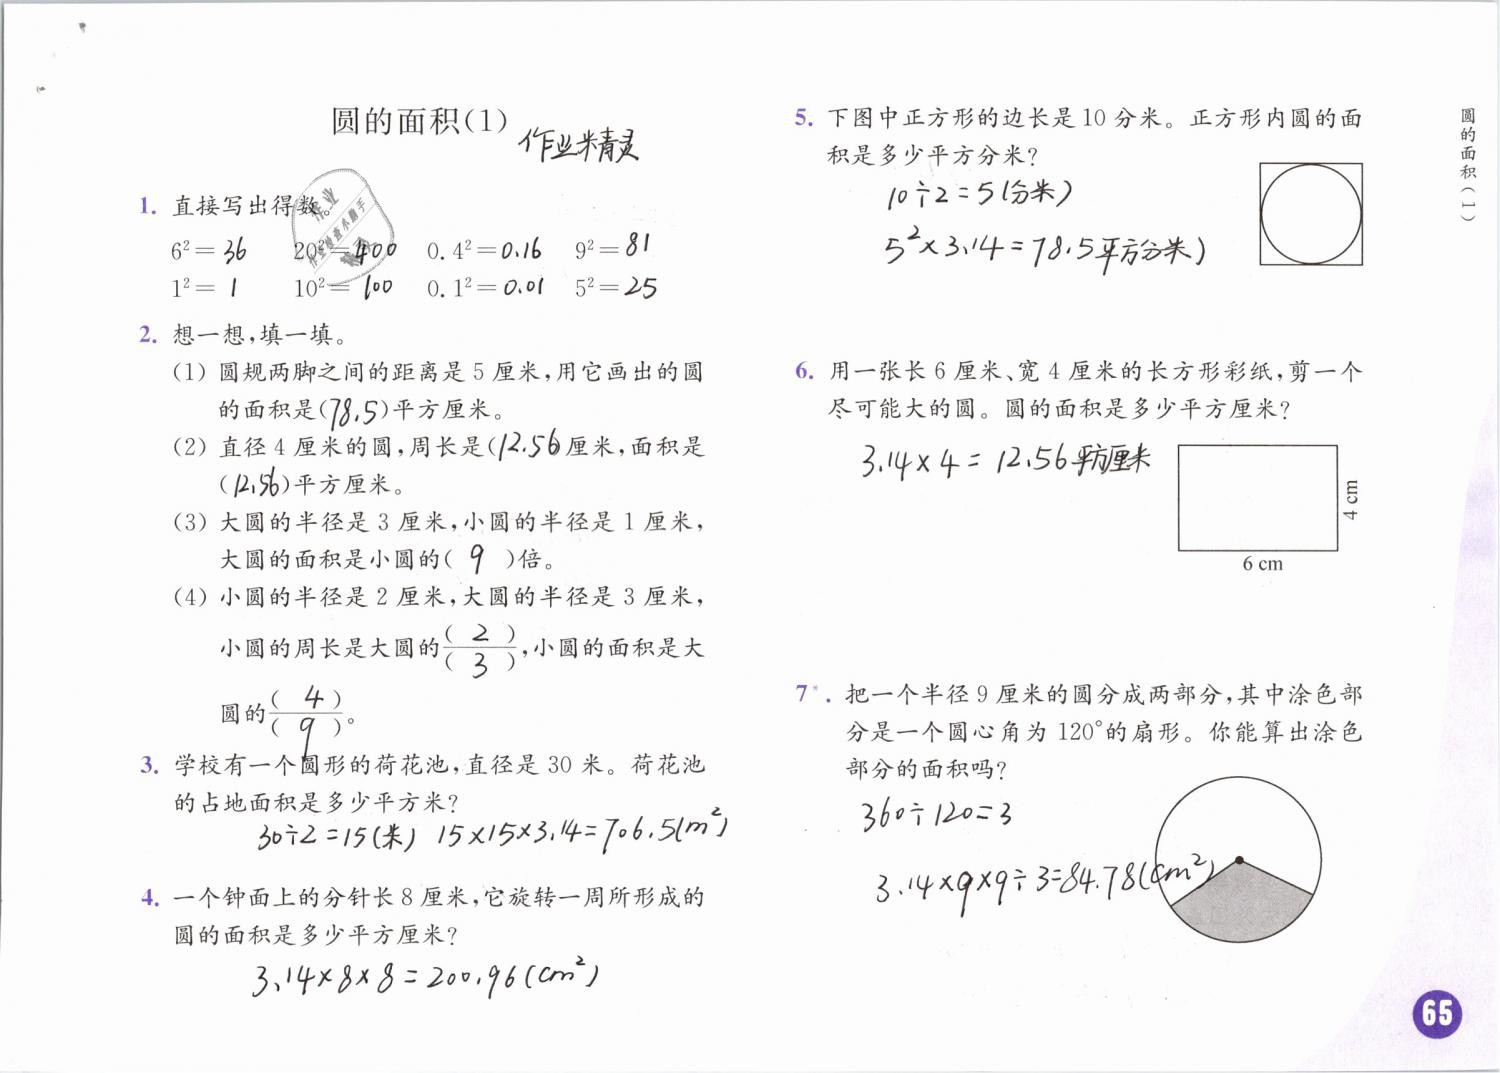 圆的面积(1)
作业精灵
1. 直接写出得数。
6²=36 20²=400 0.4²=0.16 9²=81
1²=1 10²=100 0.1²=0.01 5²=25
2. 想一想,填一填。
(1) 圆规两脚之间的距离是 5 厘米,用它画出的圆
的面积是(78.5)平方厘米。
(2) 直径 4 厘米的圆,周长是(12.56厘米,面积是
(12.56)平方厘米。
(3) 大圆的半径是 3 厘米,小圆的半径是 1 厘米,
大圆的面积是小圆的( 9 )倍。
(4) 小圆的半径是 2 厘米,大圆的半径是 3 厘米,
小圆的周长是大圆的( 2 )/( 3 ),小圆的面积是大
圆的( 4 )/( 9 )。
3. 学校有一个圆形的荷花池,直径是 30 米。荷花池
的占地面积是多少平方米?
30÷2=15(米) 15×15×3.14=706.5(m²)
4. 一个钟面上的分针长 8 厘米,它旋转一周所形成的
圆的面积是多少平方厘米?
3.14×8×8=200.96(cm²)
5. 下图中正方形的边长是 10 分米。正方形内圆的面
积是多少平方分米?
10÷2=5(分米)
5²×3.14=78.5平方分米)
6. 用一张长 6 厘米、宽 4 厘米的长方形彩纸,剪一个
尽可能大的圆。圆的面积是多少平方厘米?
3.14×4=12.56平方厘米
4 cm
6 cm
7*. 把一个半径 9 厘米的圆分成两部分,其中涂色部
分是一个圆心角为 120°的扇形。你能算出涂色
部分的面积吗?
360÷120=3
3.14×9×9÷3=84.78(cm²)
圆的面积(一)
65